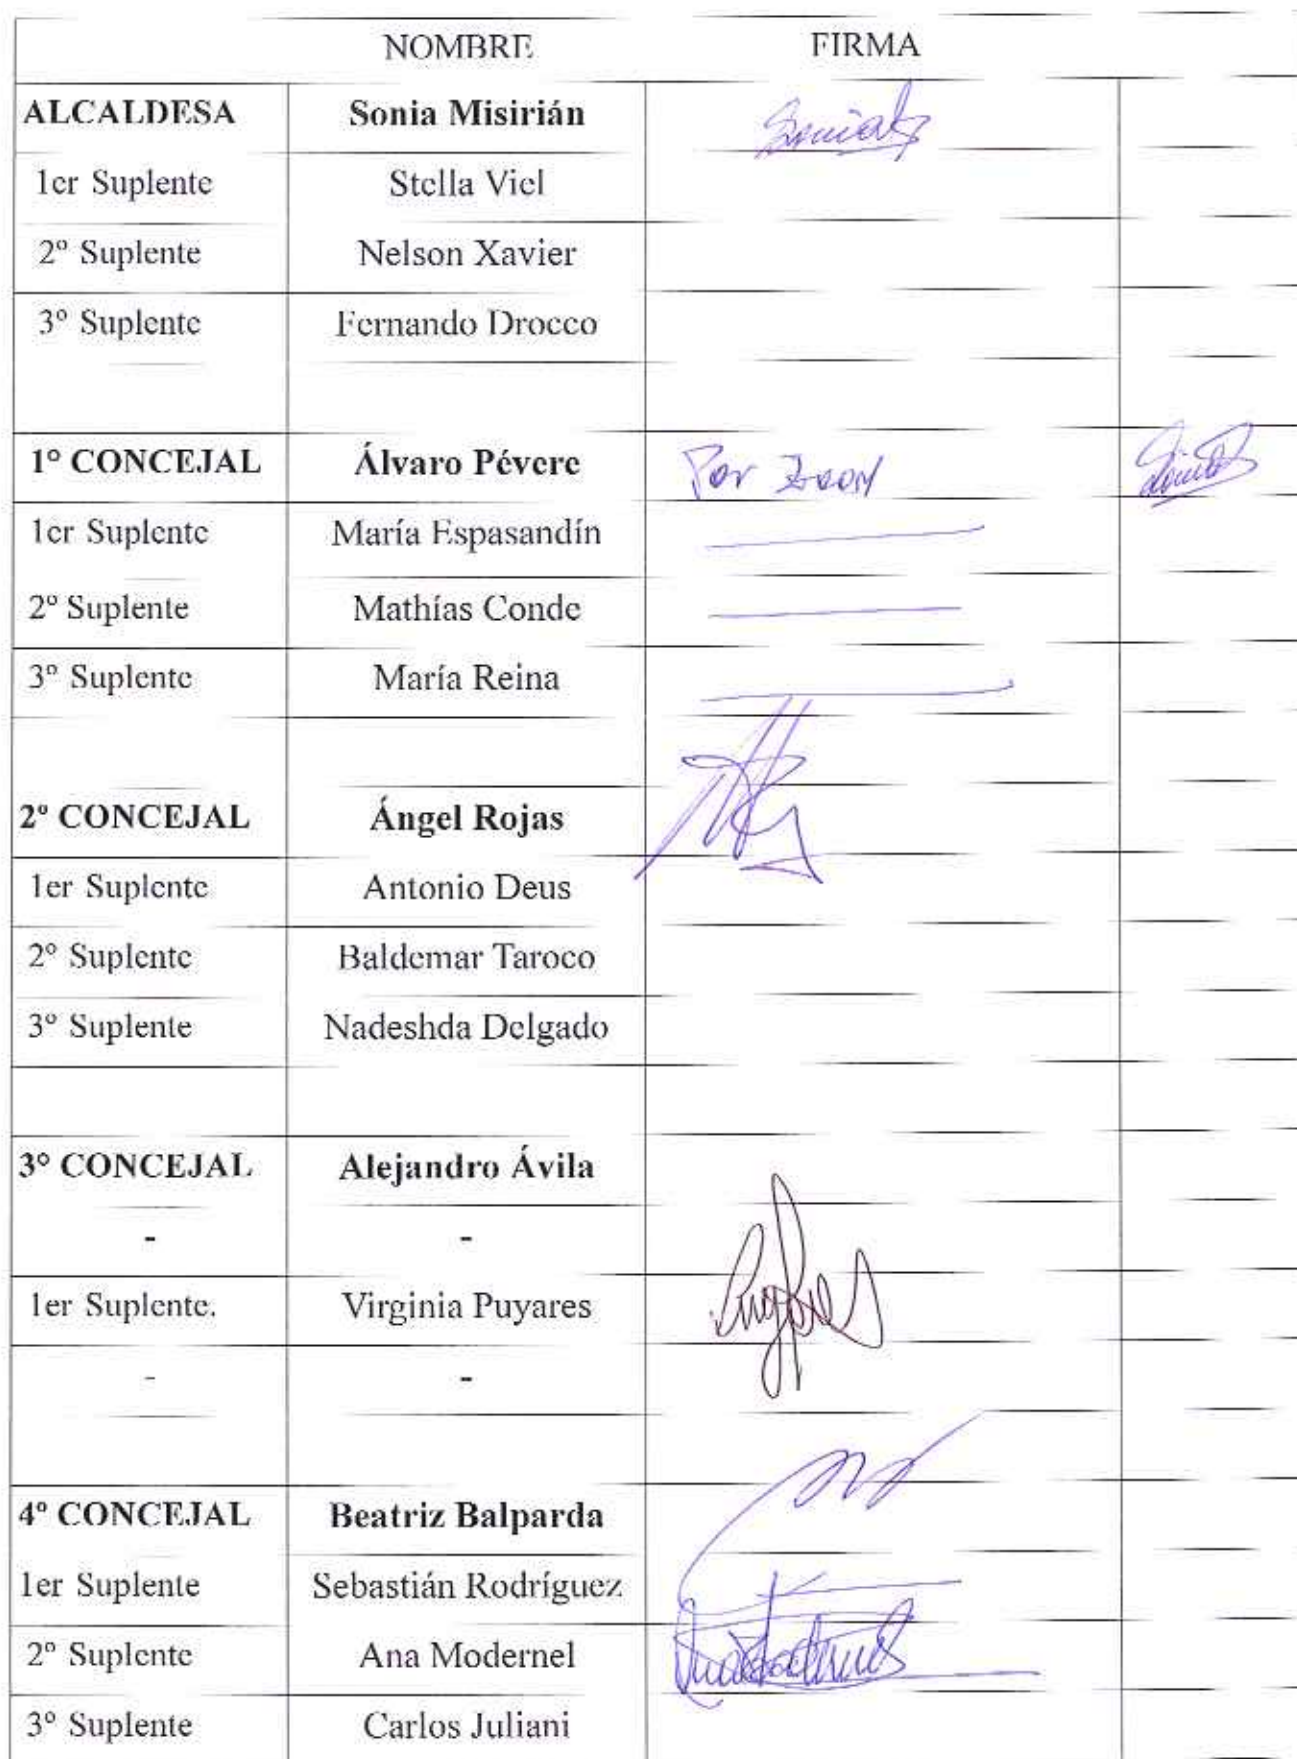 NOMBRE FIRMA
ALCALDESA Sonia Misirián
1er Suplente Stella Viel
2º Suplente Nelson Xavier
3º Suplente Fernando Drocco
1º CONCEJAL Álvaro Pévere Por Zoom
1er Suplente María Espasandín
2º Suplente Mathías Conde
3º Suplente María Reina
2º CONCEJAL Ángel Rojas
1er Suplente Antonio Deus
2º Suplente Baldemar Taroco
3º Suplente Nadeshda Delgado
3º CONCEJAL Alejandro Ávila
- -
1er Suplente. Virginia Puyares
- -
4º CONCEJAL Beatriz Balparda
1er Suplente Sebastián Rodríguez
2º Suplente Ana Modernel
3º Suplente Carlos Juliani